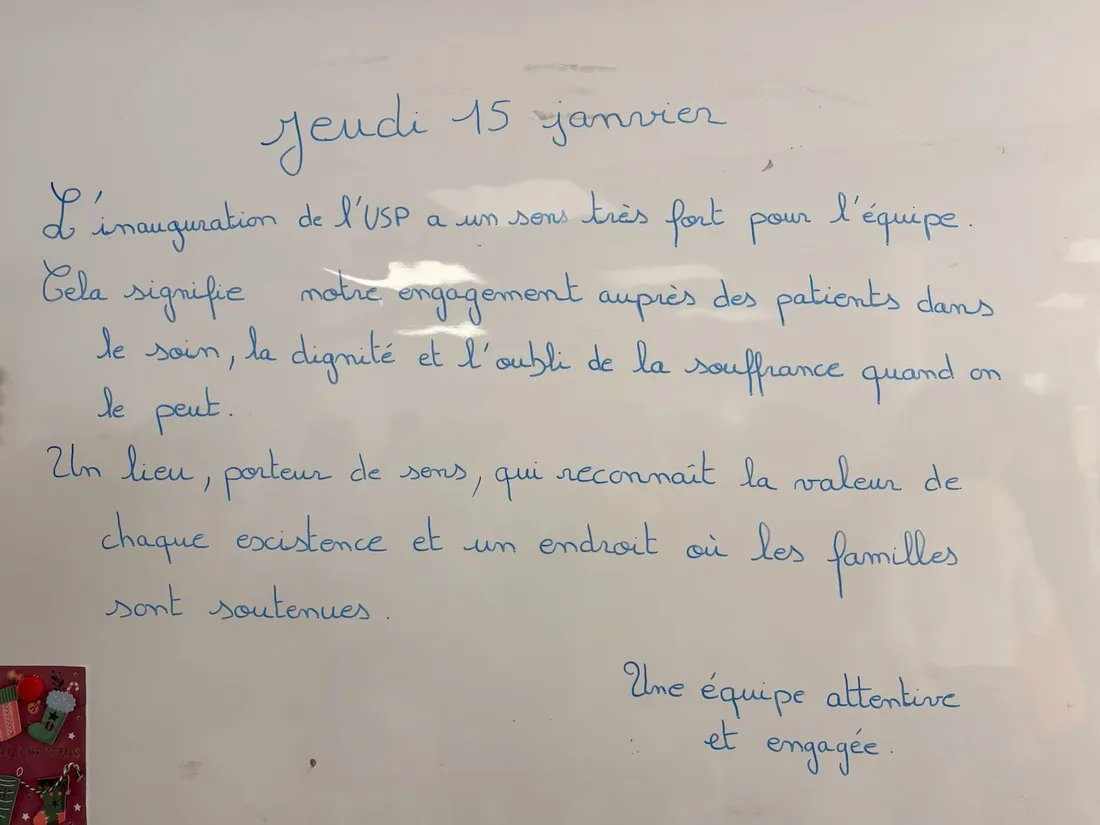 Jeudi 15 janvier
L'inauguration de l'USP a un sens très fort pour l'équipe.
Cela signifie notre engagement auprès des patients dans
le soin, la dignité et l'oubli de la souffrance quand on
le peut.
Un lieu, porteur de sens, qui reconnaît la valeur de
chaque existence et un endroit où les familles
sont soutenues.
Une équipe attentive
et engagée.